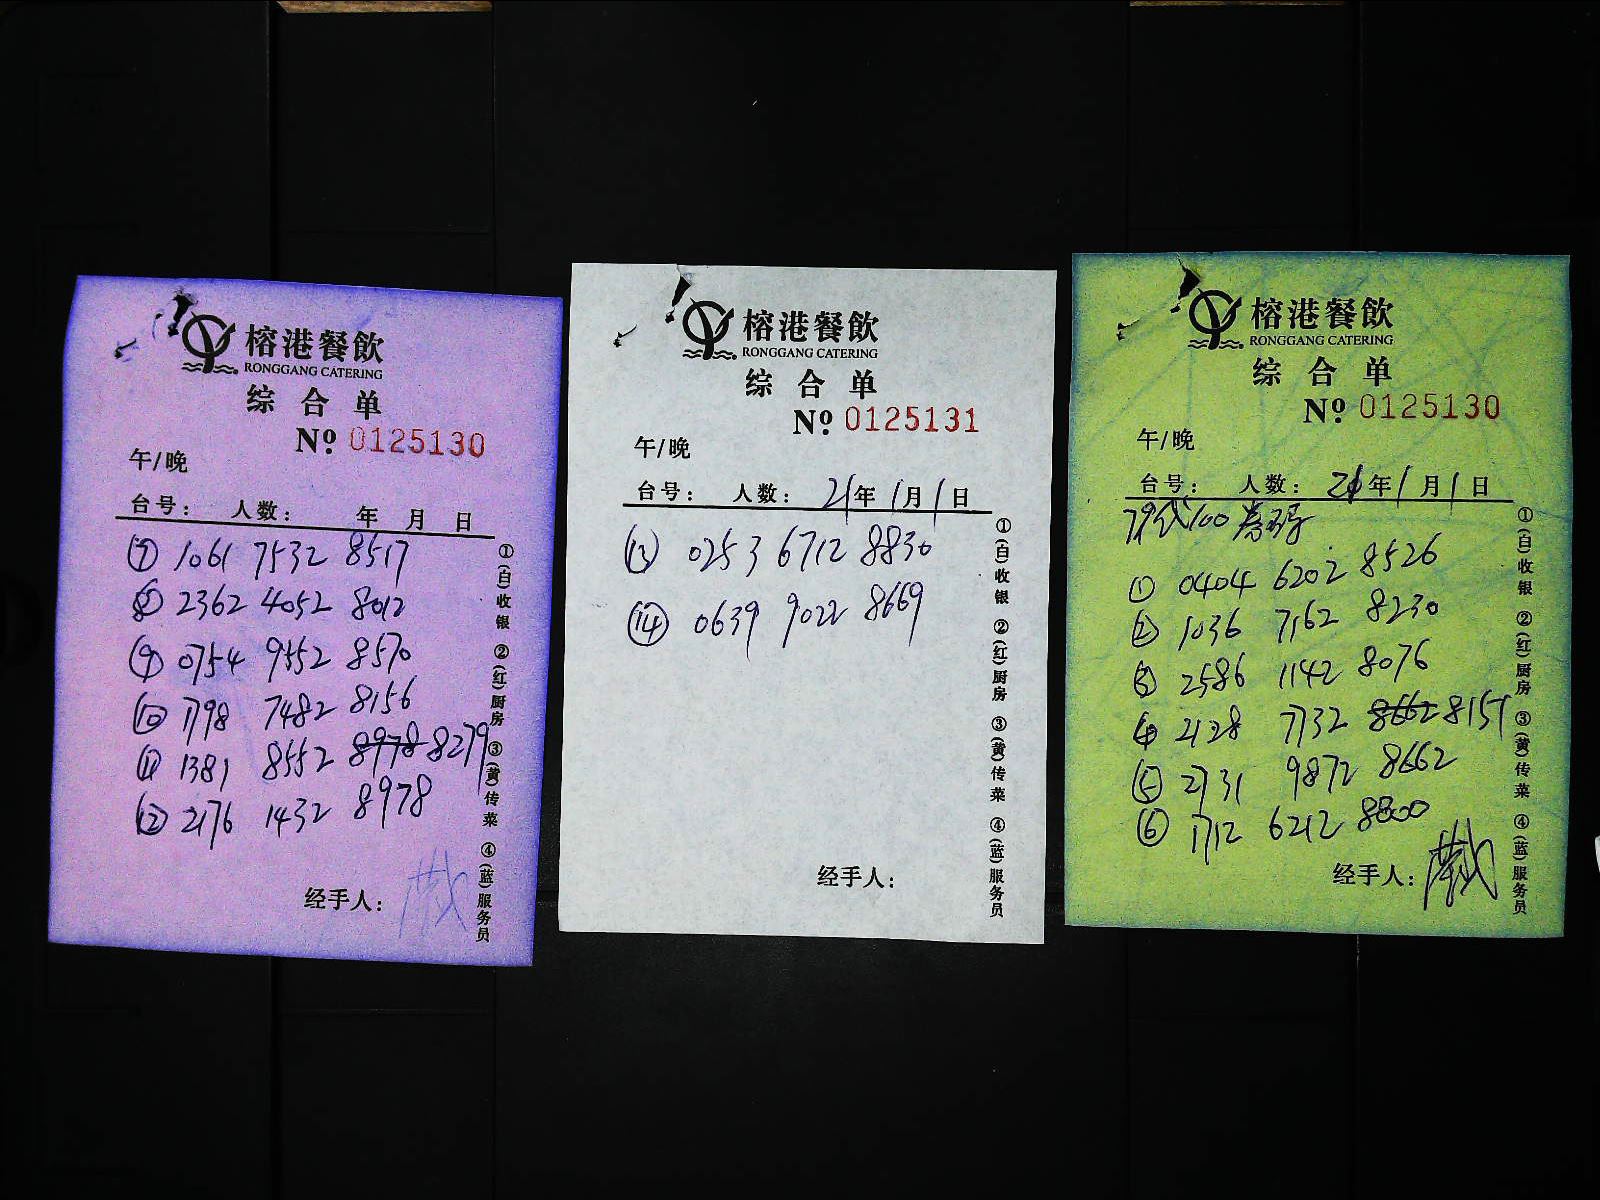 榕港餐飲
RONGGANG CATERING
综合单
№ 0125130
午/晚
台号： 人数： 年 月 日
⑦ 1061 7532 8517
⑧ 2362 4052 8012
⑨ 0754 9552 8570
⑩ 1798 7482 8156
⑪ 1381 8552 8978 8279
⑫ 2176 1432 8978
经手人：
①(白)收银 ②(红)厨房 ③(黄)传菜 ④(蓝)服务员
榕港餐飲
RONGGANG CATERING
综合单
№ 0125131
午/晚
台号： 人数： 21年1月1日
⑬ 0253 6712 8830
⑭ 0639 9022 8669
经手人：
①(白)收银 ②(红)厨房 ③(黄)传菜 ④(蓝)服务员
榕港餐飲
RONGGANG CATERING
综合单
№ 0125130
午/晚
台号： 人数： 21年1月1日
100
① 0404 6202 8526
② 1036 7162 8230
③ 2586 1142 8076
④ 2128 7732 8662 8151
⑤ 2731 9872 8662
⑥ 1712 6212 8800
经手人：
①(白)收银 ②(红)厨房 ③(黄)传菜 ④(蓝)服务员